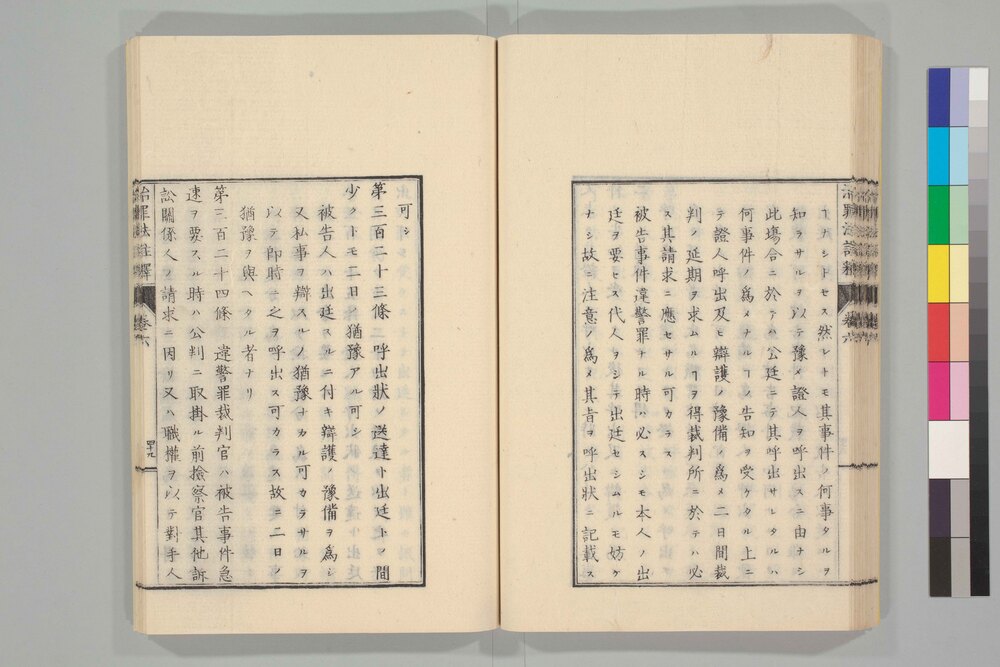 ヿナシトセス然レトモ其事件ノ何事タルヲ
知ラサルヲ以テ豫メ證人ヲ呼出スニ由ナシ
此塲合ニ於テハ公廷ニテ其呼出サレタルハ
何事件ノ爲メナルヿノ告知ヲ受ケタル上ニ
テ證人呼出及ヒ辯護ノ豫備ノ爲メ二日間裁
判ノ延期ヲ求ムルヿヲ得裁判所ニ於テハ必
ス其請求ニ應セサル可カラス
被告事件違警罪ナル時ハ必スシモ本人ノ出
廷ヲ要セス代人ヲシテ出廷セシムルモ妨ケ
ナシ故ニ注意ノ爲メ其旨ヲ呼出狀ニ記載ス
可シ
第三百二十三條 呼出狀ノ送達ト出廷トノ間
少クトモ二日ノ猶豫アル可シ
被告人ハ出廷スルニ付キ辯護ノ豫備ヲ爲シ
又私事ヲ辯スルノ猶豫ナカル可カラサルヲ
以テ即時ニ之ヲ呼出ス可カラス故ニ二日ノ
猶豫ヲ與ヘタル者ナリ
第三百二十四條 違警罪裁判官ハ被告事件急
速ヲ要スル時ハ公判ニ取掛ル前撿察官其他訴
訟關係人ノ請求ニ因リ又ハ職權ヲ以テ對手人
治罪法註釋 卷六
四十九